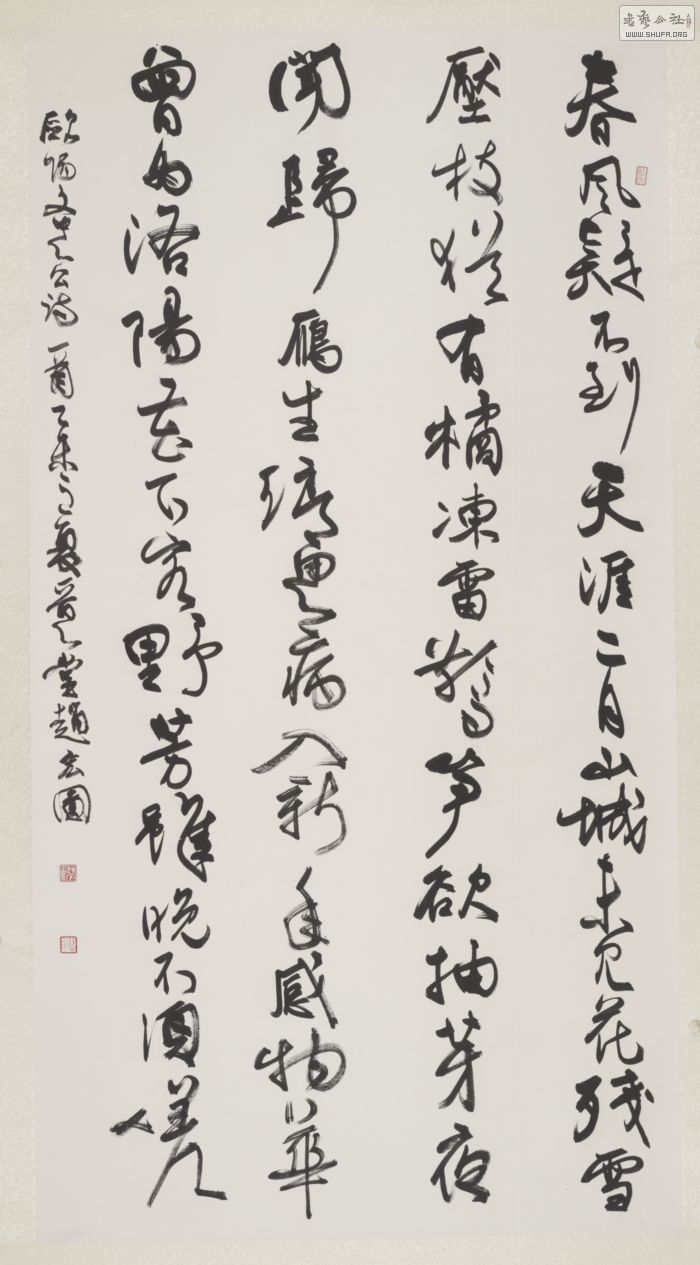 春風疑不到天涯二月山城未見花殘雪
壓枝猶有橘凍雷驚筍欲抽芽夜
聞歸鴈生鄉思病入新年感物華
曾為洛陽花下客野芳雖晚不須嗟
歐陽文忠公詩一首乙未之夏
書藝公社
WWW.SHUFA.ORG